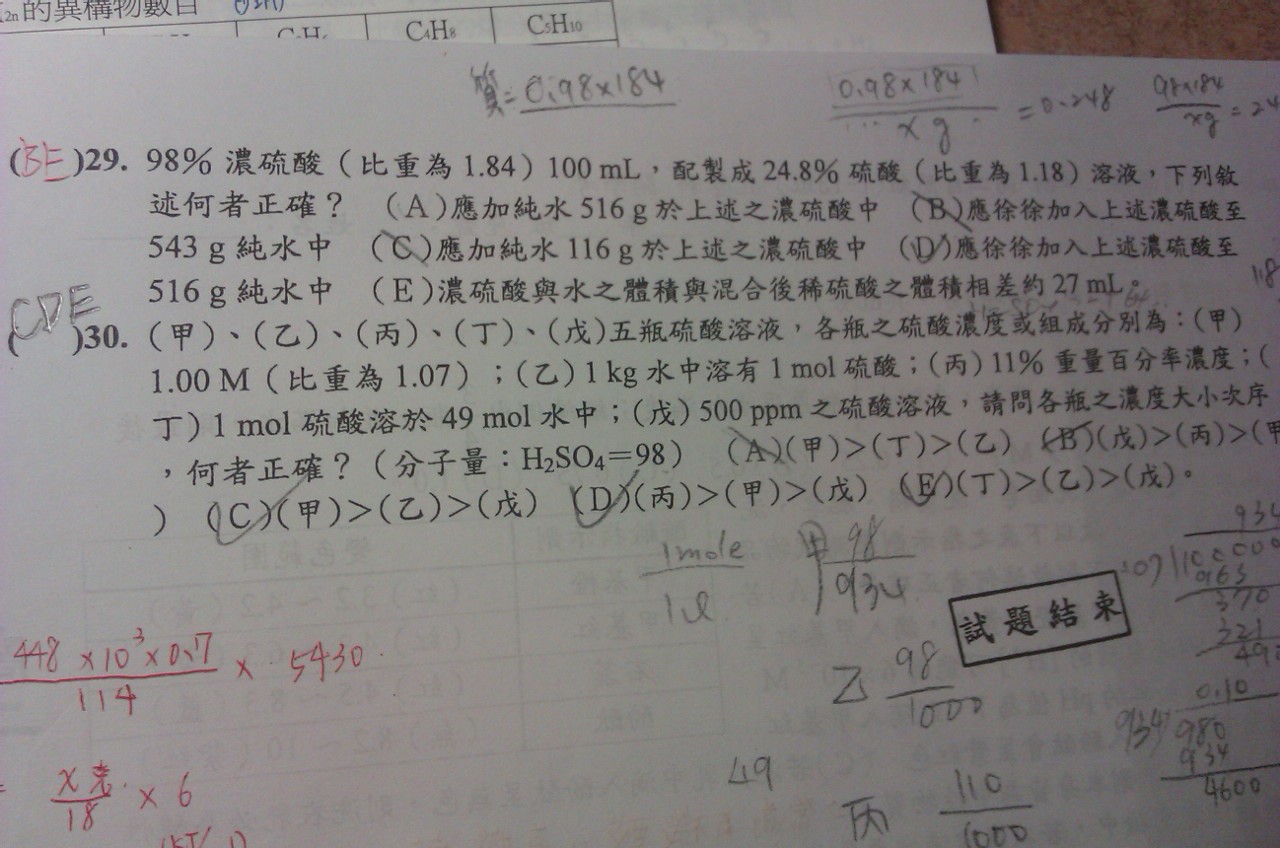 2n的異構物數目
C4H8 C5H10
質=0.98×184
0.98×184 / x g =0.248
98×184 / xg =24
(BE)29. 98% 濃硫酸（比重為 1.84）100 mL，配製成 24.8% 硫酸（比重為 1.18）溶液，下列敘
述何者正確？ (A)應加純水 516 g 於上述之濃硫酸中 (B)應徐徐加入上述濃硫酸至
543 g 純水中 (C)應加純水 116 g 於上述之濃硫酸中 (D)應徐徐加入上述濃硫酸至
516 g 純水中 (E)濃硫酸與水之體積與混合後稀硫酸之體積相差約 27 mL。
118
(CDE)30. (甲)、(乙)、(丙)、(丁)、(戊)五瓶硫酸溶液，各瓶之硫酸濃度或組成分別為：(甲)
1.00 M（比重為 1.07）；(乙)1 kg 水中溶有 1 mol 硫酸；(丙)11% 重量百分率濃度；(
丁)1 mol 硫酸溶於 49 mol 水中；(戊)500 ppm 之硫酸溶液，請問各瓶之濃度大小次序
，何者正確？（分子量：H2SO4＝98） (A)(甲)＞(丁)＞(乙) (B)(戊)＞(丙)＞(甲
) (C)(甲)＞(乙)＞(戊) (D)(丙)＞(甲)＞(戊) (E)(丁)＞(乙)＞(戊)。
1mole / 1l
甲 98 / 934
試題結束
448×10³×0.7 / 114 × 5430
乙 98 / 1000
x克 / 18 × 6
49
丙 110 / 1000
934
370
321
490
0.10
934 980
934
4600